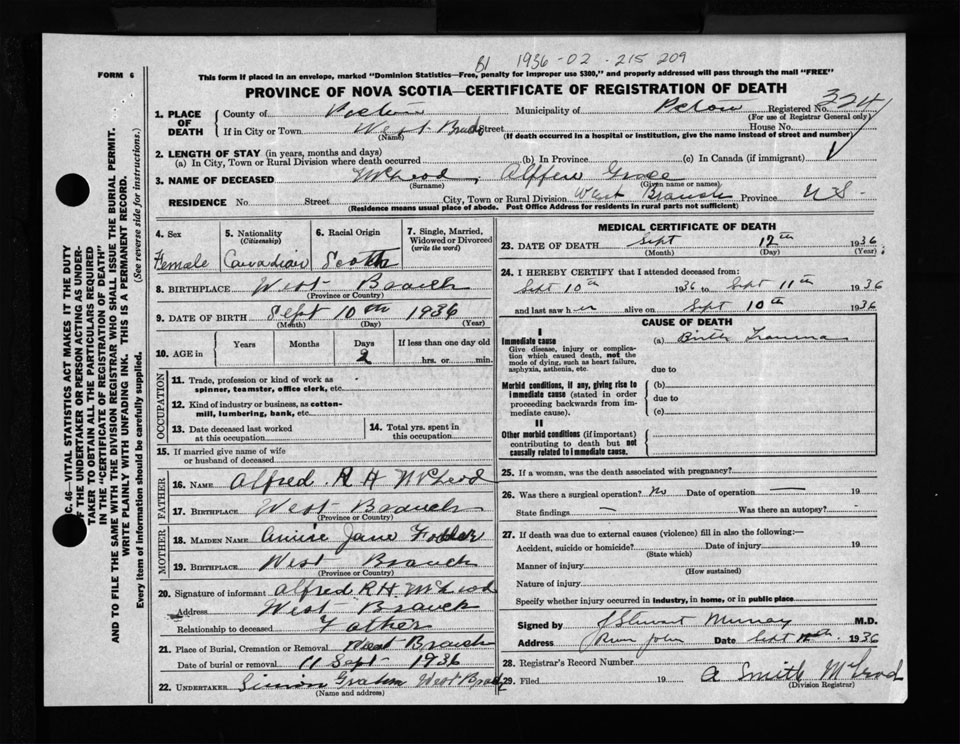 B1 1936-02-215 209
FORM 6
This form if placed in an envelope, marked "Dominion Statistics—Free, penalty for improper use $300," and properly addressed will pass through the mail "FREE"
PROVINCE OF NOVA SCOTIA—CERTIFICATE OF REGISTRATION OF DEATH
1. PLACE OF DEATH
County of Pictou Municipality of Pictou Registered No. 324
(For use of Registrar General only)
If in City or Town West Branch Street House No.
(Name) (If death occurred in a hospital or institution, give the name instead of street and number)
2. LENGTH OF STAY (in years, months and days)
(a) In City, Town or Rural Division where death occurred (b) In Province (c) In Canada (if immigrant)
3. NAME OF DECEASED McLeod, Grace
(Surname) (Given name or names)
RESIDENCE No Street City, Town or Rural Division West Branch Province N S
(Residence means usual place of abode. Post Office Address for residents in rural parts not sufficient)
4. Sex Female
5. Nationality (Citizenship) Canadian
6. Racial Origin Scotch
7. Single, Married, Widowed or Divorced (write the word)
8. BIRTHPLACE West Branch
(Province or Country)
9. DATE OF BIRTH Sept 10th 1936
(Month) (Day) (Year)
10. AGE in Years Months Days 2 If less than one day old hrs. or min.
OCCUPATION
11. Trade, profession or kind of work as spinner, teamster, office clerk, etc.
12. Kind of industry or business, as cotton-mill, lumbering, bank, etc.
13. Date deceased last worked at this occupation
14. Total yrs. spent in this occupation
15. If married give name of wife or husband of deceased
FATHER
16. NAME Alfred R H McLeod
17. BIRTHPLACE West Branch
(Province or Country)
MOTHER
18. MAIDEN NAME Annie Jane
19. BIRTHPLACE West Branch
(Province or Country)
20. Signature of informant Alfred R H McLeod
Address West Branch
Relationship to deceased Father
21. Place of Burial, Cremation or Removal West Branch
Date of burial or removal 11 Sept 1936
22. UNDERTAKER Simon Graham West Branch
(Name and address)
MEDICAL CERTIFICATE OF DEATH
23. DATE OF DEATH Sept 12th 1936
(Month) (Day) (Year)
24. I HEREBY CERTIFY that I attended deceased from:
Sept 10th 1936 to Sept 11th 1936
and last saw her alive on Sept 10th 1936
CAUSE OF DEATH
I
Immediate cause (a) Birth Trauma
Give disease, injury or complication which caused death, not the mode of dying, such as heart failure, asphyxia, asthenia, etc.
due to
Morbid conditions, if any, giving rise to immediate cause (stated in order proceeding backwards from immediate cause).
(b)
due to
(c)
II
Other morbid conditions (if important) contributing to death but not causally related to immediate cause.
25. If a woman, was the death associated with pregnancy?
26. Was there a surgical operation? No Date of operation — 19
State findings — Was there an autopsy? -
27. If death was due to external causes (violence) fill in also the following:—
Accident, suicide or homicide? Date of injury 19
(State which)
Manner of injury
(How sustained)
Nature of injury
Specify whether injury occurred in industry, in home, or in public place
Signed by J Stewart Murray M.D.
Address River John Date Sept 1936
28. Registrar's Record Number
29. Filed 19 A Smith McLeod
(Division Registrar)
C. 46—VITAL STATISTICS ACT MAKES IT THE DUTY
OF THE UNDERTAKER OR PERSON ACTING AS UNDERTAKER TO OBTAIN ALL THE PARTICULARS REQUIRED
IN THE "CERTIFICATE OF REGISTRATION OF DEATH"
AND TO FILE THE SAME WITH THE DIVISION REGISTRAR WHO SHALL ISSUE THE BURIAL PERMIT.
WRITE PLAINLY WITH UNFADING INK. THIS IS A PERMANENT RECORD.
Every item of information should be carefully supplied. (See reverse side for instructions.)